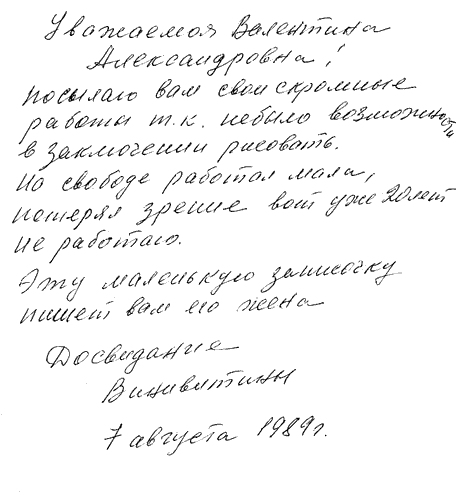 Уважаемая Валентина
Александровна!
посылаю вам свои скромные
работы т.к. небыло возможности
в заключении рисовать.
На свободе работал мала,
потерял зрение вот уже 20 лет
не работаю.
Эту маленькую записочку
пишет вам его жена
Досвидание
7 августа 1989г.